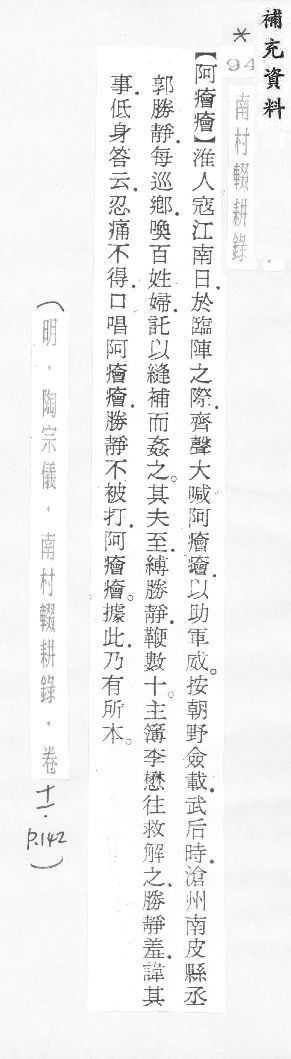 補充資料
*
94
南村輟耕錄
【阿㿗㿗】淮人寇江南日.於臨陣之際.齊聲大喊阿㿗㿗.以助軍威。按朝野僉載.武后時.滄州南皮縣丞
郭勝靜.每巡鄉.喚百姓婦.託以縫補而姦之。其夫至.縛勝靜.鞭數十。主簿李懋往救解之.勝靜羞.諱其
事.低身答云.忍痛不得.口唱阿㿗㿗.勝靜不被打.阿㿗㿗。據此.乃有所本。
(明.陶宗儀.南村輟耕錄.卷十一.P.142)